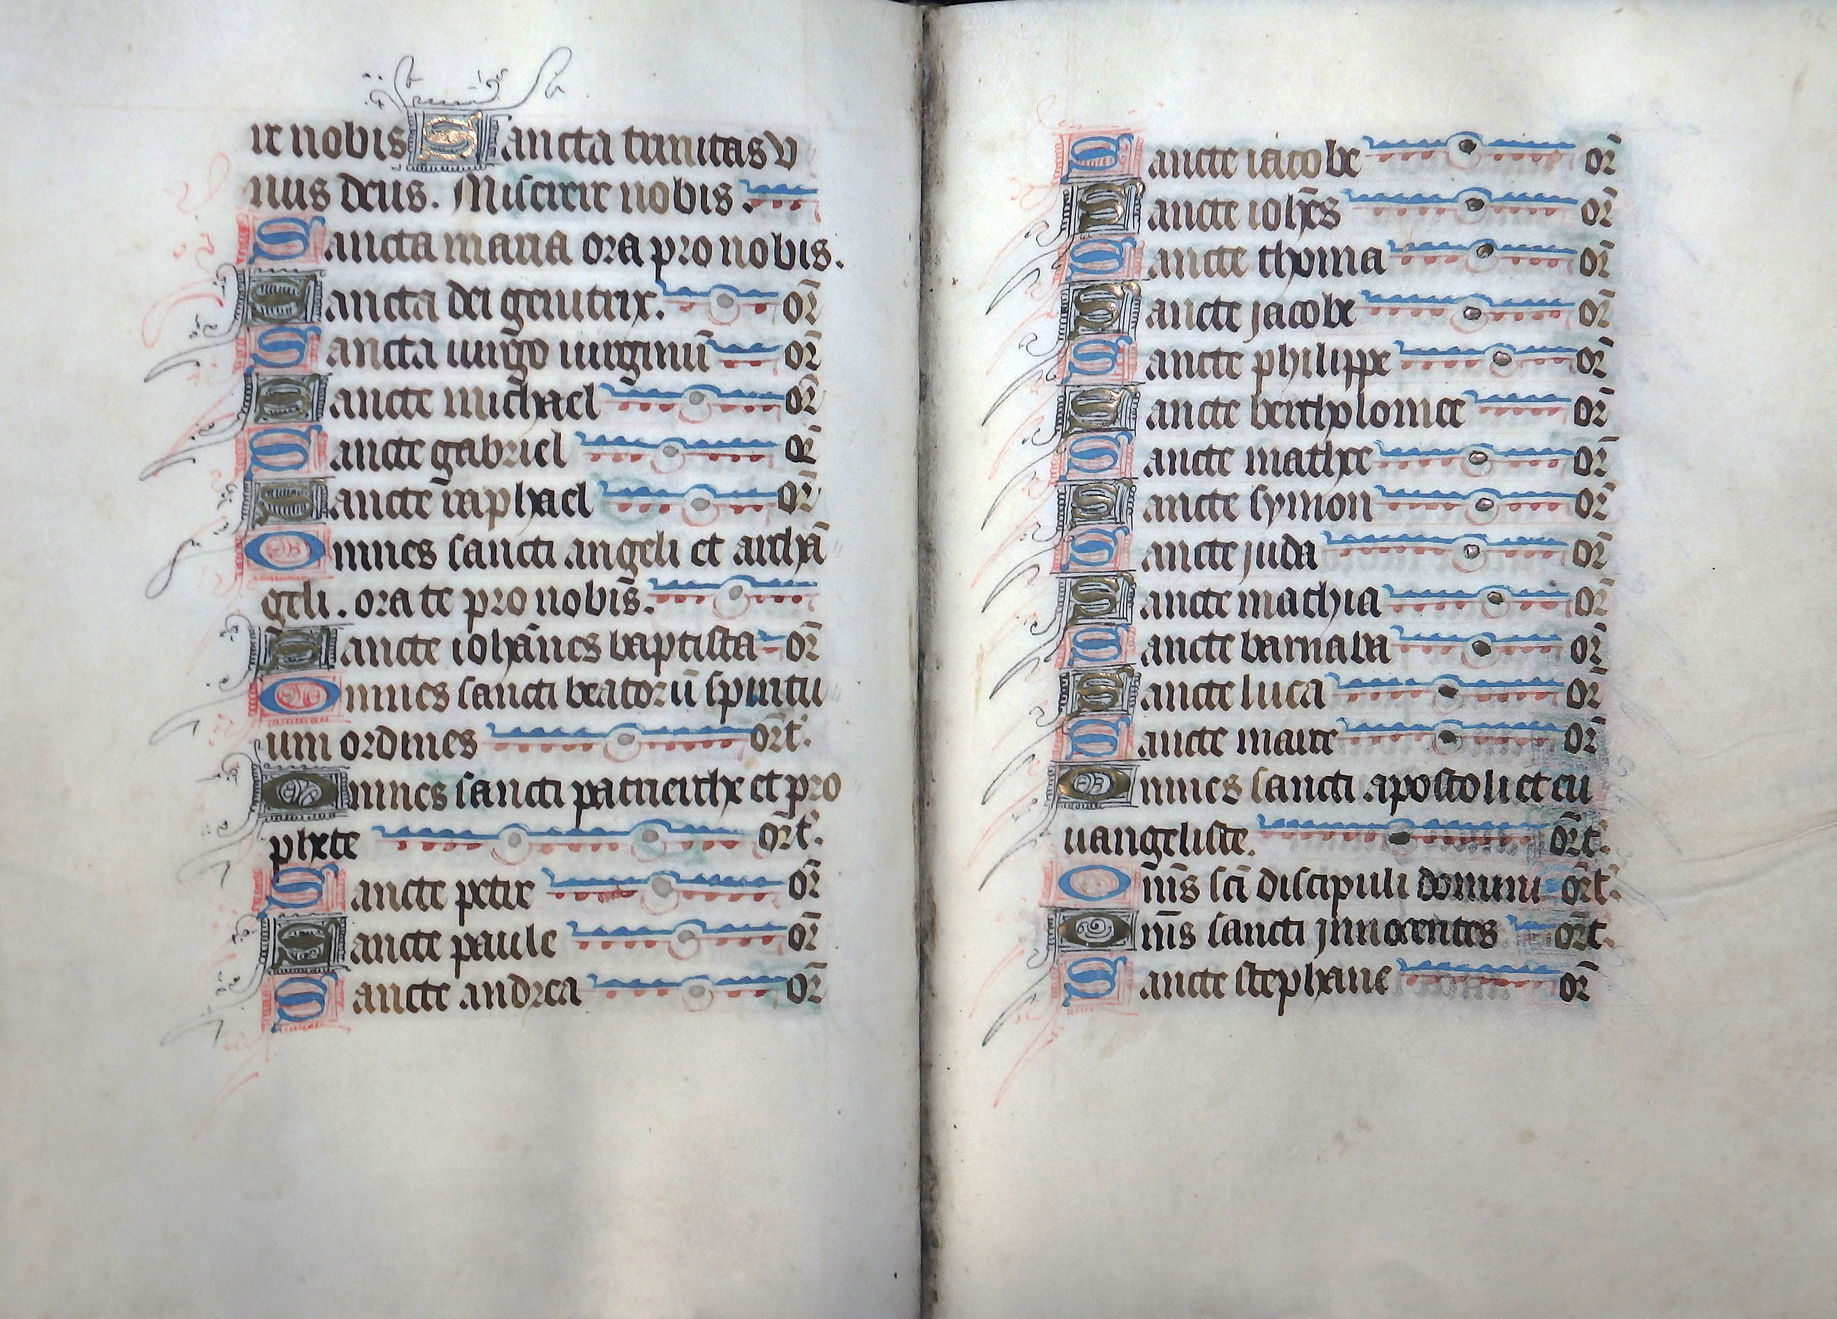 re nobis Sancta trinitas v
nus deus. Miserere nobis.
Sancta maria ora pro nobis.
Sancta dei genitrix. or̄
Sancta uirgo uirginū or̄
Sancte michael or̄
Sancte gabriel or̄
Sancte raphael or̄
Omnes sancti angeli et archā
geli. orate pro nobis.
Sancte iohānes baptista or̄
Omnes sancti beatorū spiritu
um ordines or̄t.
Omnes sancti patrierche et pro
phete or̄t.
Sancte petre or̄
Sancte paule or̄
Sancte andrea or̄
Sancte iacobe or̄
Sancte ioh̄es or̄
Sancte thoma or̄
Sancte jacobe or̄
Sancte philippe or̄
Sancte bertholomee or̄
Sancte mathee or̄
Sancte symon or̄
Sancte juda or̄
Sancte mathia or̄
Sancte barnaba or̄
Sancte luca or̄
Sancte marce or̄
Omnes sancti apostoli et eu
uangeliste. or̄t.
Om̄s sc̄i discipuli domini or̄t.
Om̄s sancti jnnocentes or̄t.
Sancte stephane or̄